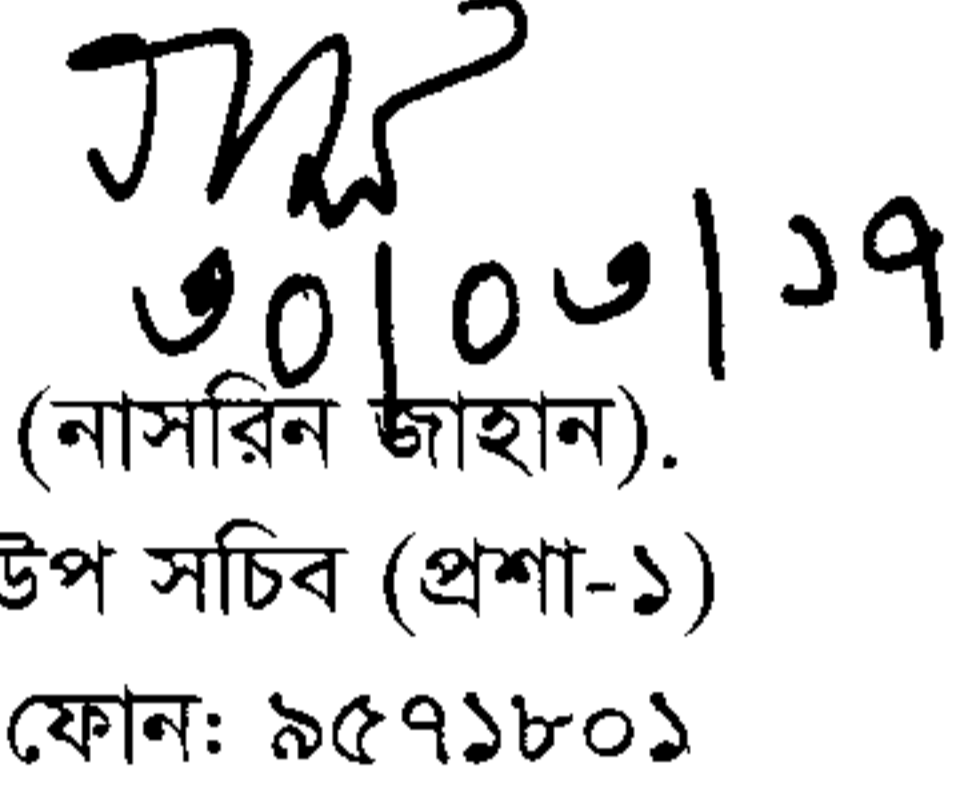 ৩০|০৩|১৭
(নাসরিন জাহান).
উপ সচিব (প্রশা-১)
ফোন: ৯৫৭১৮০১